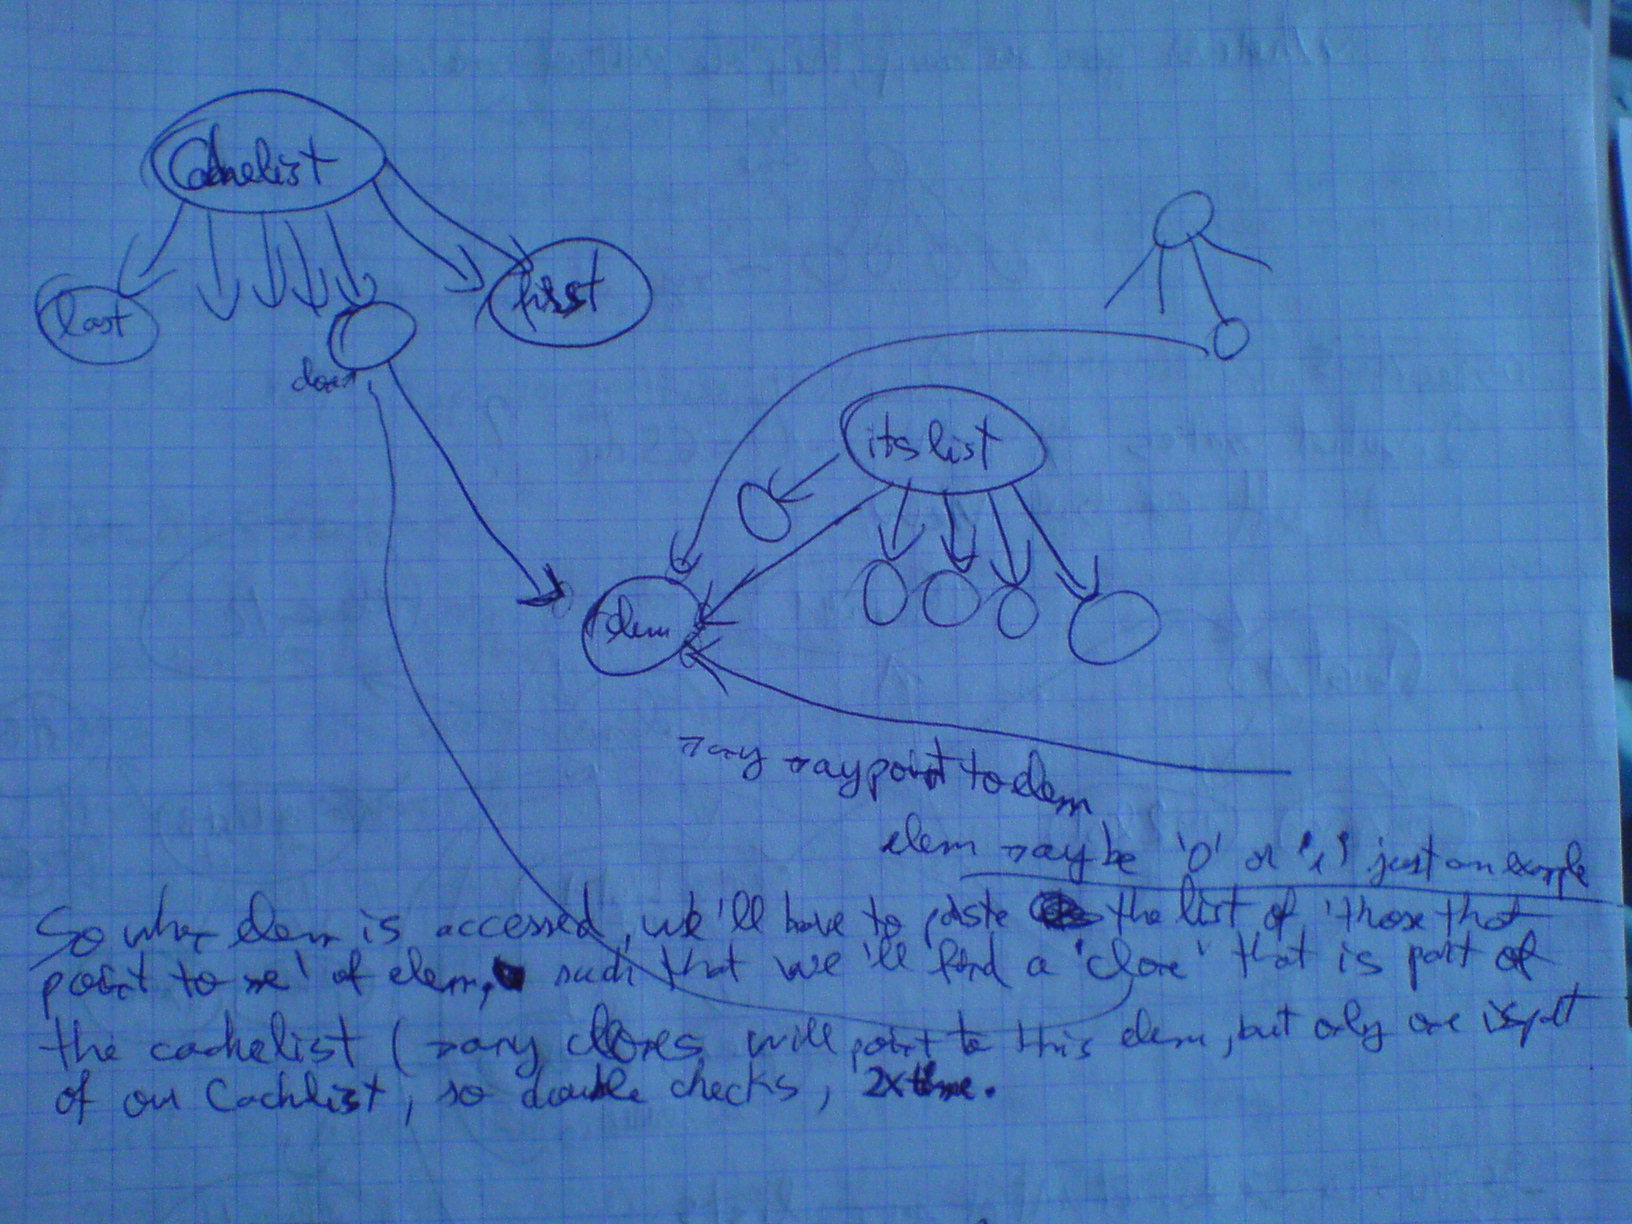 Cachelist
last
first
clone
its list
elem
many may point to elem
elem may be '0' or '1' just an example
So when elem is accessed, we'll have to parse the list of 'those that
point to me' of elem, such that we'll find a 'clone' that is part of
the cachelist (many clones will point to this elem, but only one is part
of our Cachelist, so double checks, 2x time.